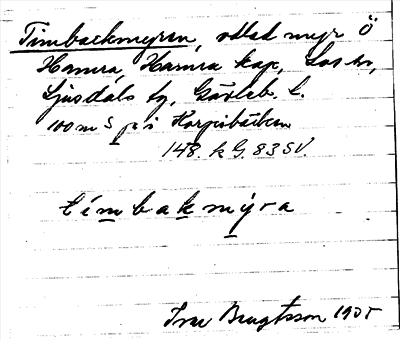 Timbackmyren, odlad myr Ö
Hamra, Hamra kap., Los sn,
Ljusdals tg, Gävleb. l.
100 m S på i Korpisbäcken
148. k G. 83 SV.
tímbakmýra
Bengtsson 1905